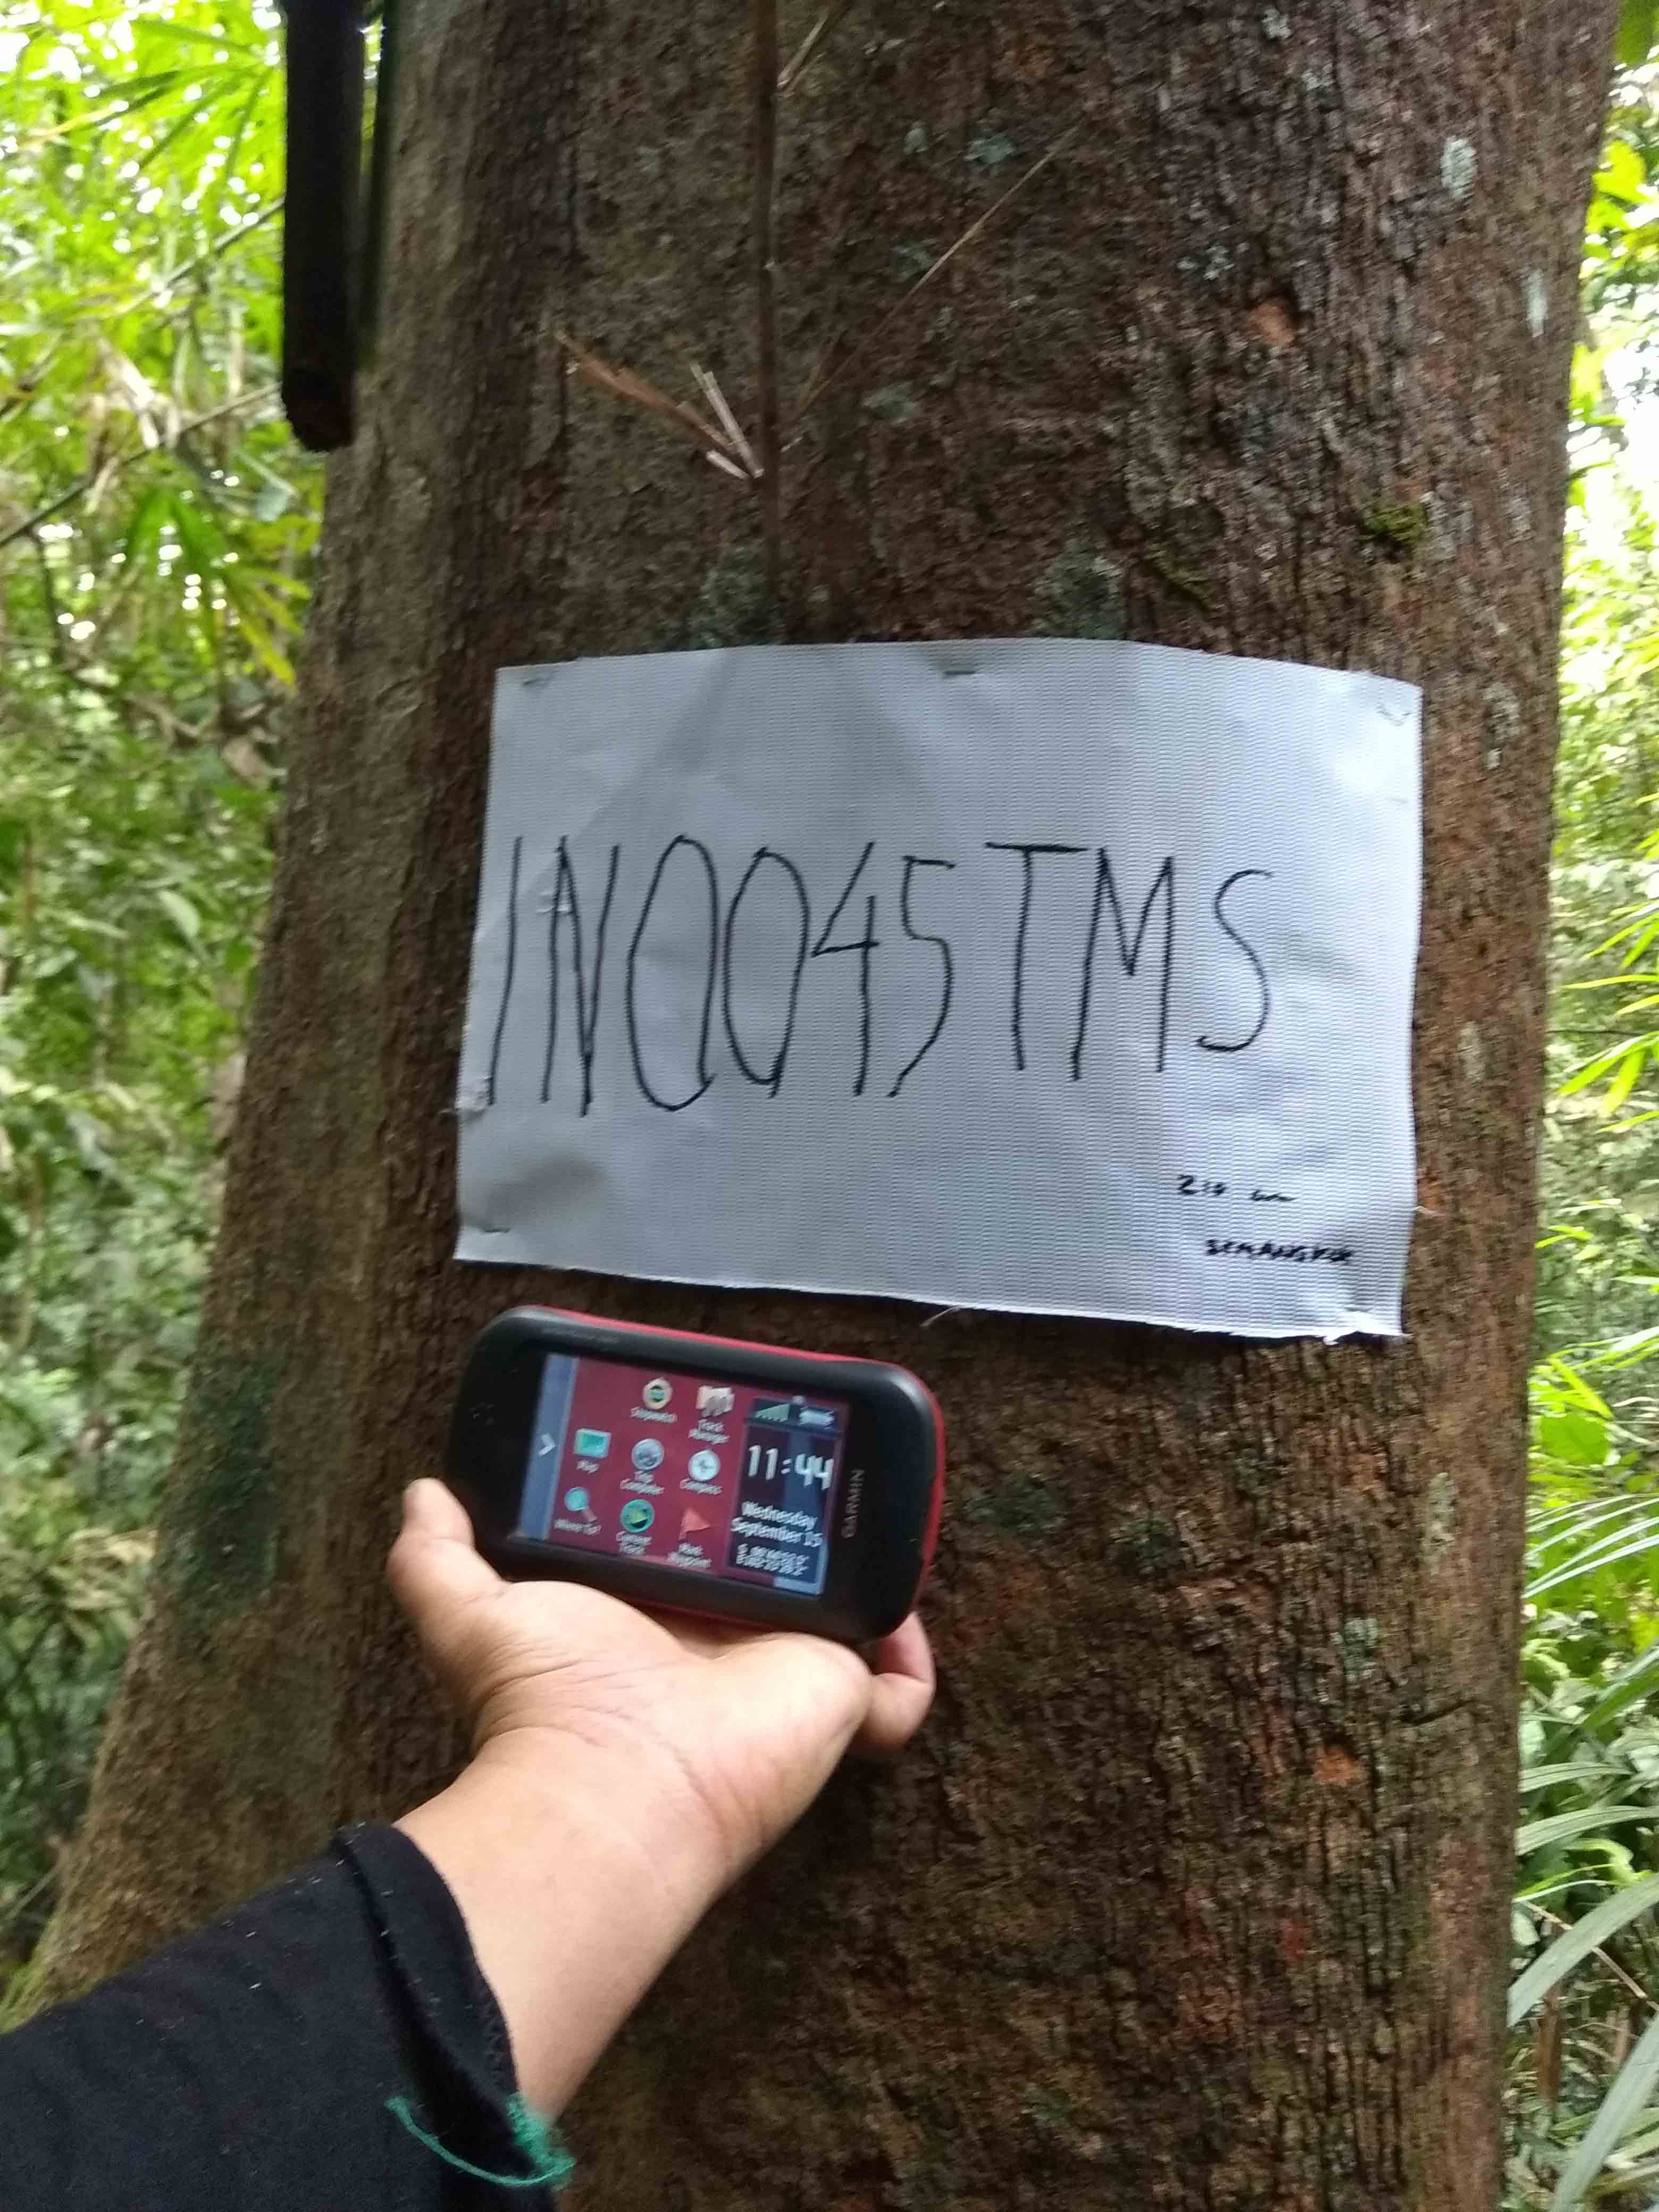 INO045TMS
210 cm
SEMANGKOK
Stopwatch
Track
Manager
Map
Trip
Computer
Compass
Where To?
Current
Track
Mark
Waypoint
11:44
Wednesday
September 15
GARMIN